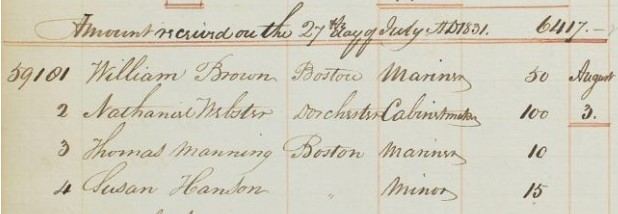 Amount received on the 27th day of July AD 1831. 6417.—
59101 William Brown Boston Mariner 50 August
2 Nathaniel Webster Dorchester Cabinetmaker 100 3.
3 Thomas Manning Boston Mariner 10
4 Susan Hanson " Minor 15